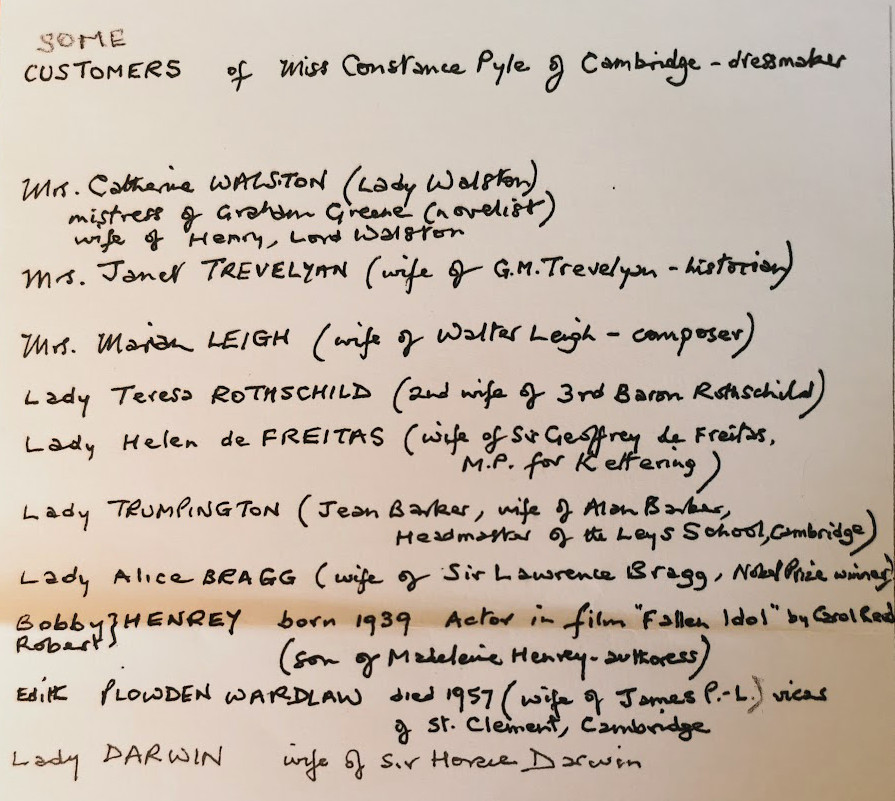 SOME
CUSTOMERS of Miss Constance Pyle of Cambridge - dressmaker
Mrs. Catherine WALSTON (Lady Walston)
mistress of Graham Greene (novelist)
wife of Henry, Lord Walston
Mrs. Janet TREVELYAN (wife of G.M. Trevelyan - historian)
Mrs. Marian LEIGH (wife of Walter Leigh - composer)
Lady Teresa ROTHSCHILD (2nd wife of 3rd Baron Rothschild)
Lady Helen de FREITAS (wife of Sir Geoffrey de Freitas,
M.P. for Kettering)
Lady TRUMPINGTON (Jean Barker, wife of Alan Barker,
Headmaster of the Leys School, Cambridge)
Lady Alice BRAGG (wife of Sir Lawrence Bragg, Nobel Prize winner)
Bobby } HENREY born 1939 Actor in film "Fallen Idol" by Carol Reed
Robert
(son of Madeleine Henrey - authoress)
Edith PLOWDEN WARDLAW died 1957 (wife of James P.-L.) vicar
of St. Clement, Cambridge
Lady DARWIN wife of Sir Horace Darwin